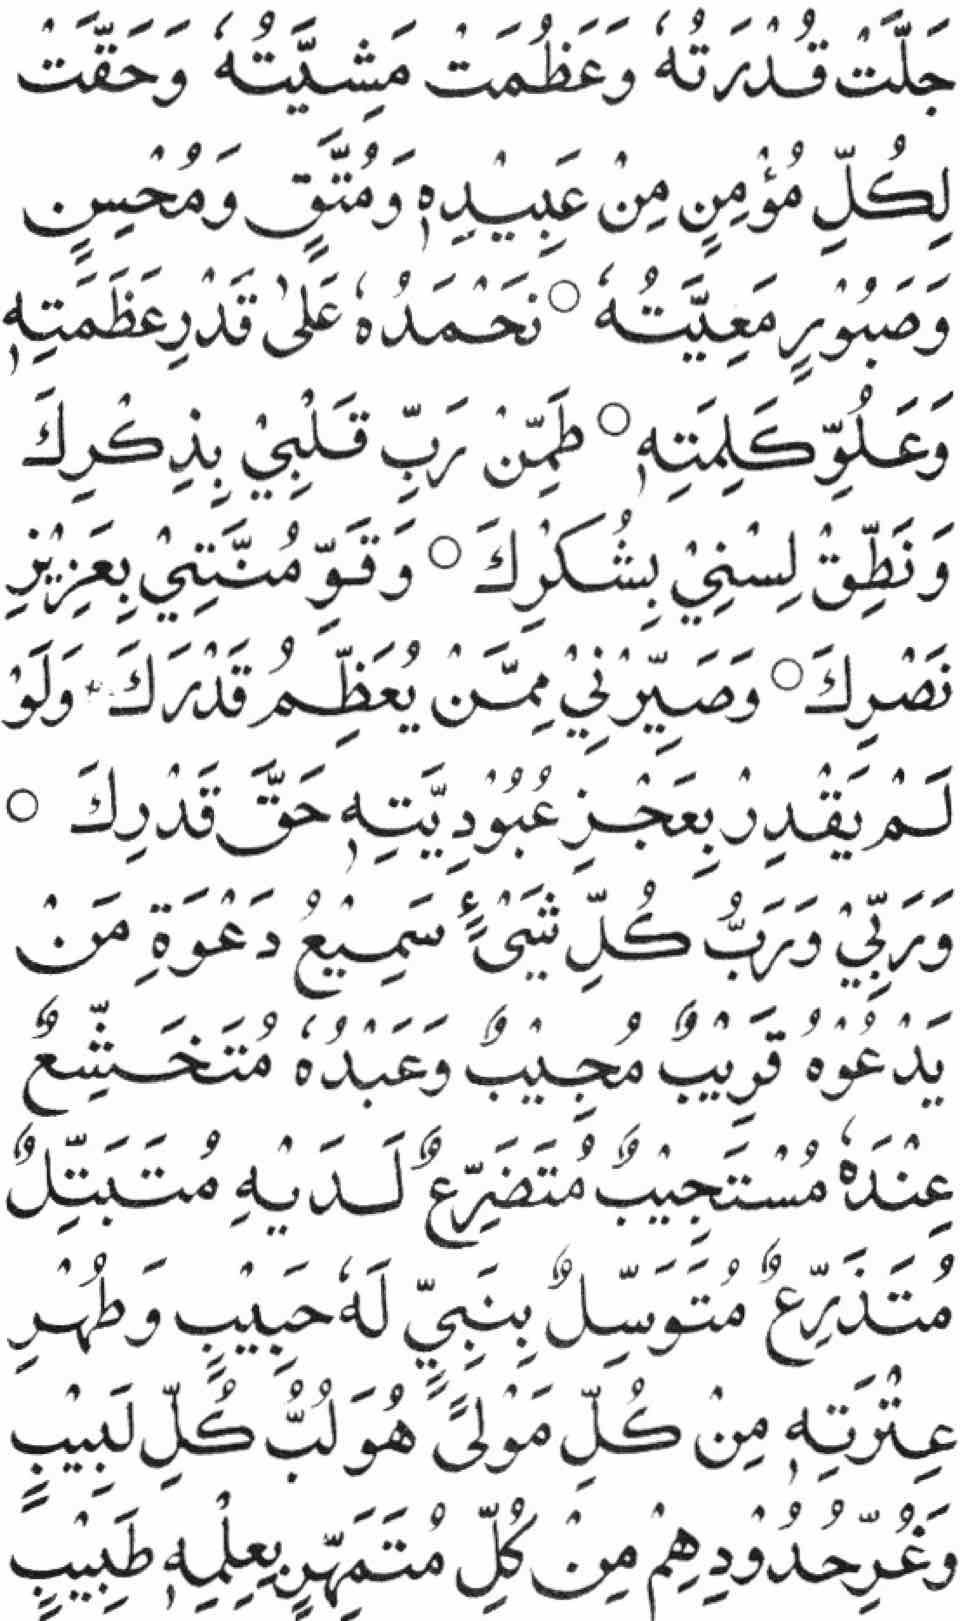 جَلَّتْ قُدْرَتُهٗ وَعَظُمَتْ مَشِيَّتُهٗ وَحَقَّتْ
لِكُلِّ مُؤْمِنٍ مِنْ عَبِيْدِهٖ وَمُتَّقٍ وَمُحْسِنٍ
وَصَبُوْرٍ مَعِيَّتُهٗ ○ نَحْمَدُهٗ عَلٰى قَدْرِ عَظَمَتِهٖ
وَعُلُوِّ كَلِمَتِهٖ ○ طَمِّنْ رَبِّ قَلْبِيْ بِذِكْرِكَ
وَنَطِّقْ لِسْنِيْ بِشُكْرِكَ ○ وَقَوِّ مُنَّتِيْ بِعَزِيْزِ
نَصْرِكَ ○ وَصَيِّرْنِيْ مِمَّنْ يُعَظِّمُ قَدْرَكَ وَلَوْ
لَمْ يَقْدِرْ بِعَجْزِ عُبُوْدِيَّتِهٖ حَقَّ قَدْرِكَ ○
وَرَبِّيْ وَرَبُّ كُلِّ شَيْءٍ سَمِيْعُ دَعْوَةِ مَنْ
يَدْعُوْهُ قَرِيْبٌ مُجِيْبٌ وَعَبْدُهٗ مُتَخَشِّعٌ
عِنْدَهٗ مُسْتَجِيْبٌ مُتَضَرِّعٌ لَدَيْهِ مُتَبَتِّلٌ
مُتَذَرِّعٌ مُتَوَسِّلٌ بِنَبِيٍّ لَهٗ حَبِيْبٍ وَطُهْرِ
عِتْرَتِهٖ مِنْ كُلِّ مَوْلًى هُوَ لُبُّ كُلِّ لَبِيْبٍ
وَغُرِّ حُدُوْدِهِمْ مِنْ كُلِّ مُتَمَهِّرٍ بِعِلْمِهٖ طَبِيْبٍ